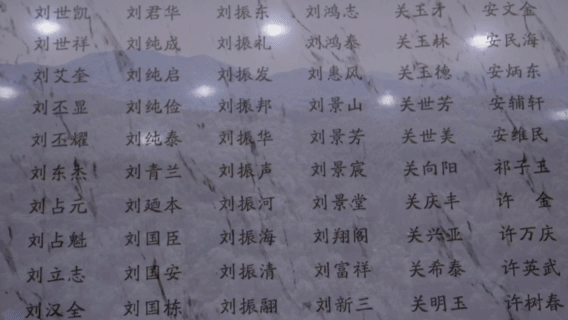 刘世凯 刘君华 刘振东 刘鸿志 关玉才 安文金
刘世祥 刘纯成 刘振礼 刘鸿泰 关玉林 安民海
刘艾奎 刘纯启 刘振发 刘惠风 关玉德 安炳东
刘丕显 刘纯俭 刘振邦 刘景山 关世芳 安辅轩
刘丕耀 刘纯泰 刘振华 刘景芳 关世美 安维民
刘东杰 刘青兰 刘振声 刘景宸 关向阳 祁子玉
刘占元 刘廷本 刘振河 刘景堂 关庆丰 许金
刘占魁 刘国臣 刘振海 刘翔阁 关兴亚 许万庆
刘立志 刘国安 刘振清 刘富祥 关希泰 许英武
刘汉全 刘国栋 刘振翮 刘新三 关明玉 许树春